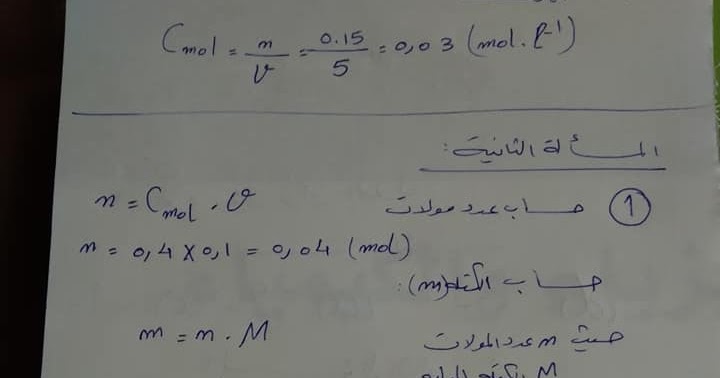 C mol = n/V = 0.15/5 = 0,03 (mol. l⁻¹)
المسألة الثانية:
① حساب عدد مولات n = C mol . V
n = 0,4 × 0,1 = 0,04 (mol)
حساب الكتلة (m):
حيث n عدد المولات m = n . M
M